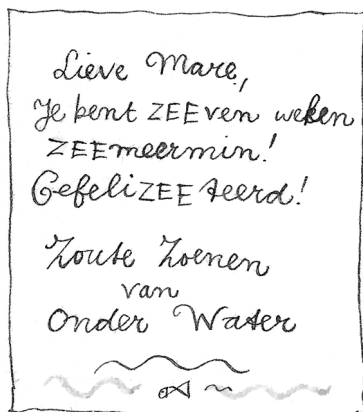 Lieve Mare,
Je bent ZEEven weken
ZEEmeermin!
GefeliZEEteerd!
Zoute Zoenen
van
Onder Water